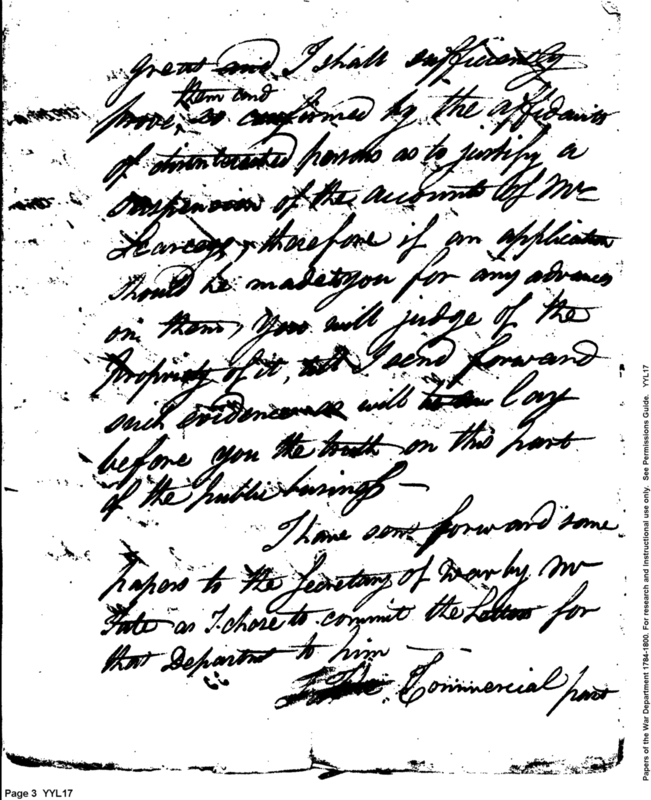 great and I shall sufficiently
them and
prove, so confirmed by the affidavits
of disinterested persons as to justify a
suspension of the accounts of Mr
therefore if an application
should be made to you for any advances
on them, you will judge of the
Propriety of it, till I send forward
such evidence as will lay
before you the truth on this part
of the public business —
I have sent forward some
papers to the Secretary of War by Mr
Tate as I chose to commit the Letters for
that Department to him —
Commercial part
Page 3 YYL17
Papers of the War Department 1784-1800. For research and instructional use only. See Permissions Guide. YYL17